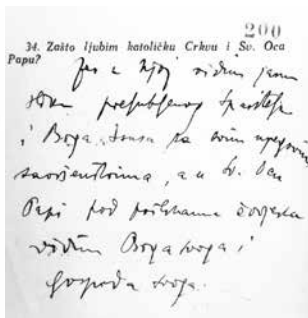 200
34. Zašto ljubim katoličku Crkvu i Sv. Oca
Papu?
Jer u njoj vidim jasnu
sliku preljubljenog Spasitelja
i Boga Isusa sa svim njegovim
savršenstvima, a u Sv. Ocu
Papi pod prilikama čovjeka
vidim Boga svoga i
Gospoda svoga.